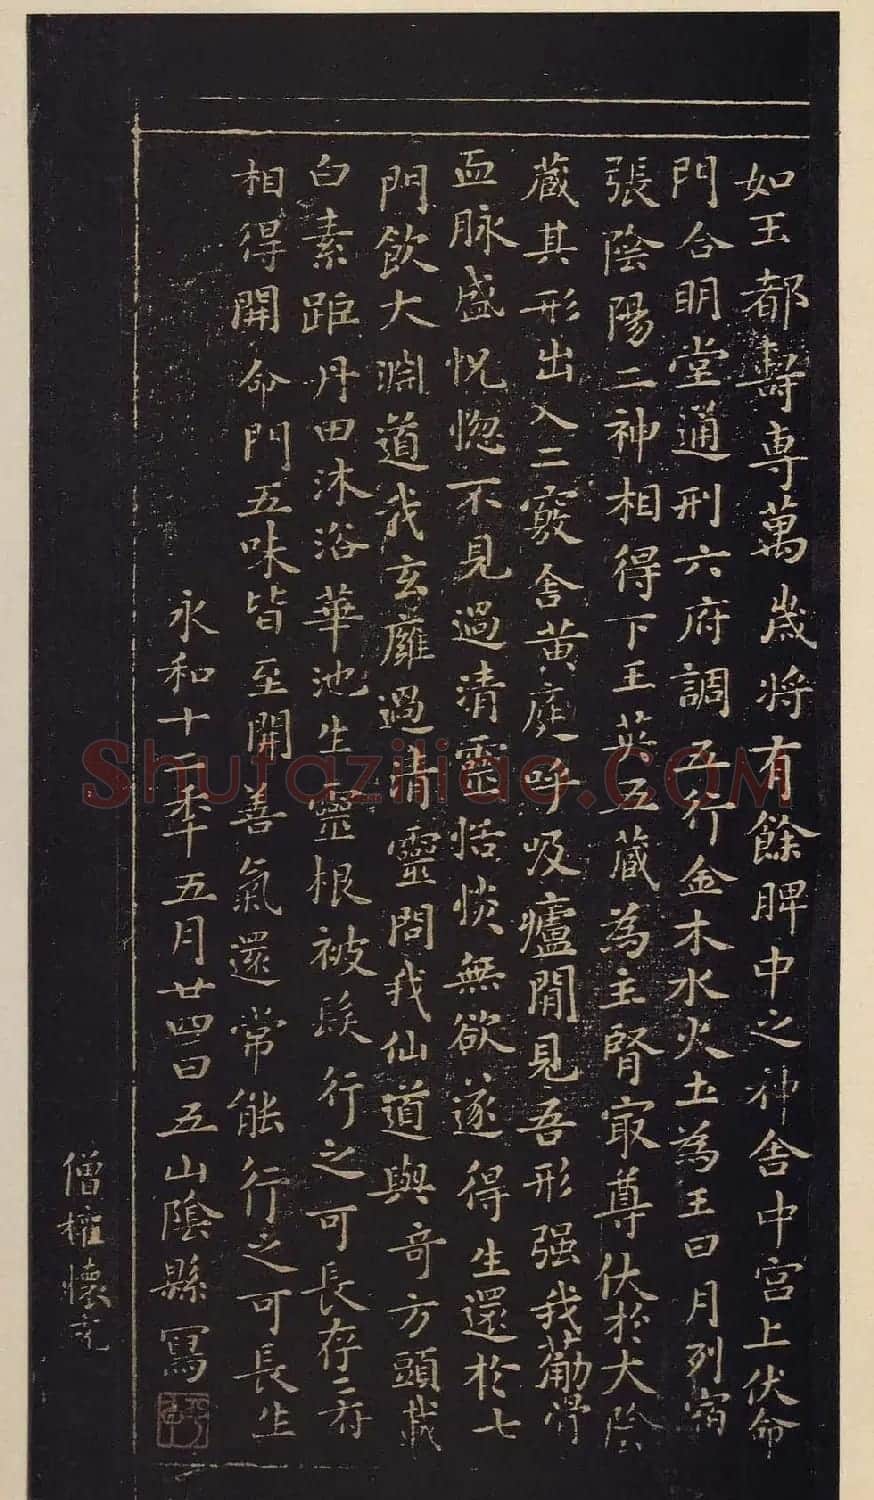 如玉都壽專萬歲將有餘脾中之神舍中宮上伏命
門合明堂通利六府調五行金木水火土為王日月列宿
張陰陽二神相得下玉英五藏為主腎㝡尊伏於大陰
藏其形出入二竅舍黃庭呼吸廬間見吾形强我葪骨
血脉盛怳惚不見過清靈恬惔無欲遂得生還於七
門飲大渕道我玄廱過清靈問我仙道與奇方頭載
白素距丹田沐浴華池生靈根被髮行之可長存二府
相得開命門五味皆至開善氣還常能行之可長生
永和十二秊五月廿四日五山陰縣冩
僧權懷充
Shufaziliao.COM